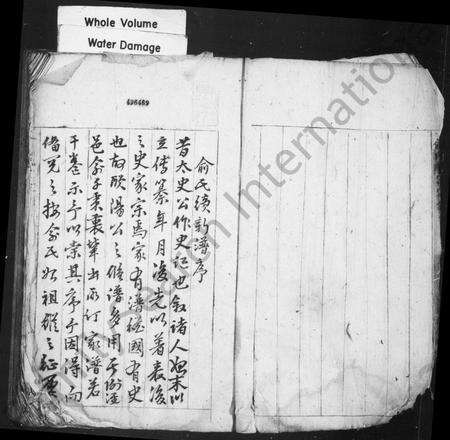 Whole Volume
Water Damage
496489
俞氏續新譜序
昔太史公作史記也敘諸人始末以
立傳纂年月後先以著表後
之史家宗焉家有譜猶國有史
也故歐陽公之脩譜多用
邑俞子秉襄輩出所訂家譜若
干卷示予以索其序予因得而
備覓之按俞氏始祖